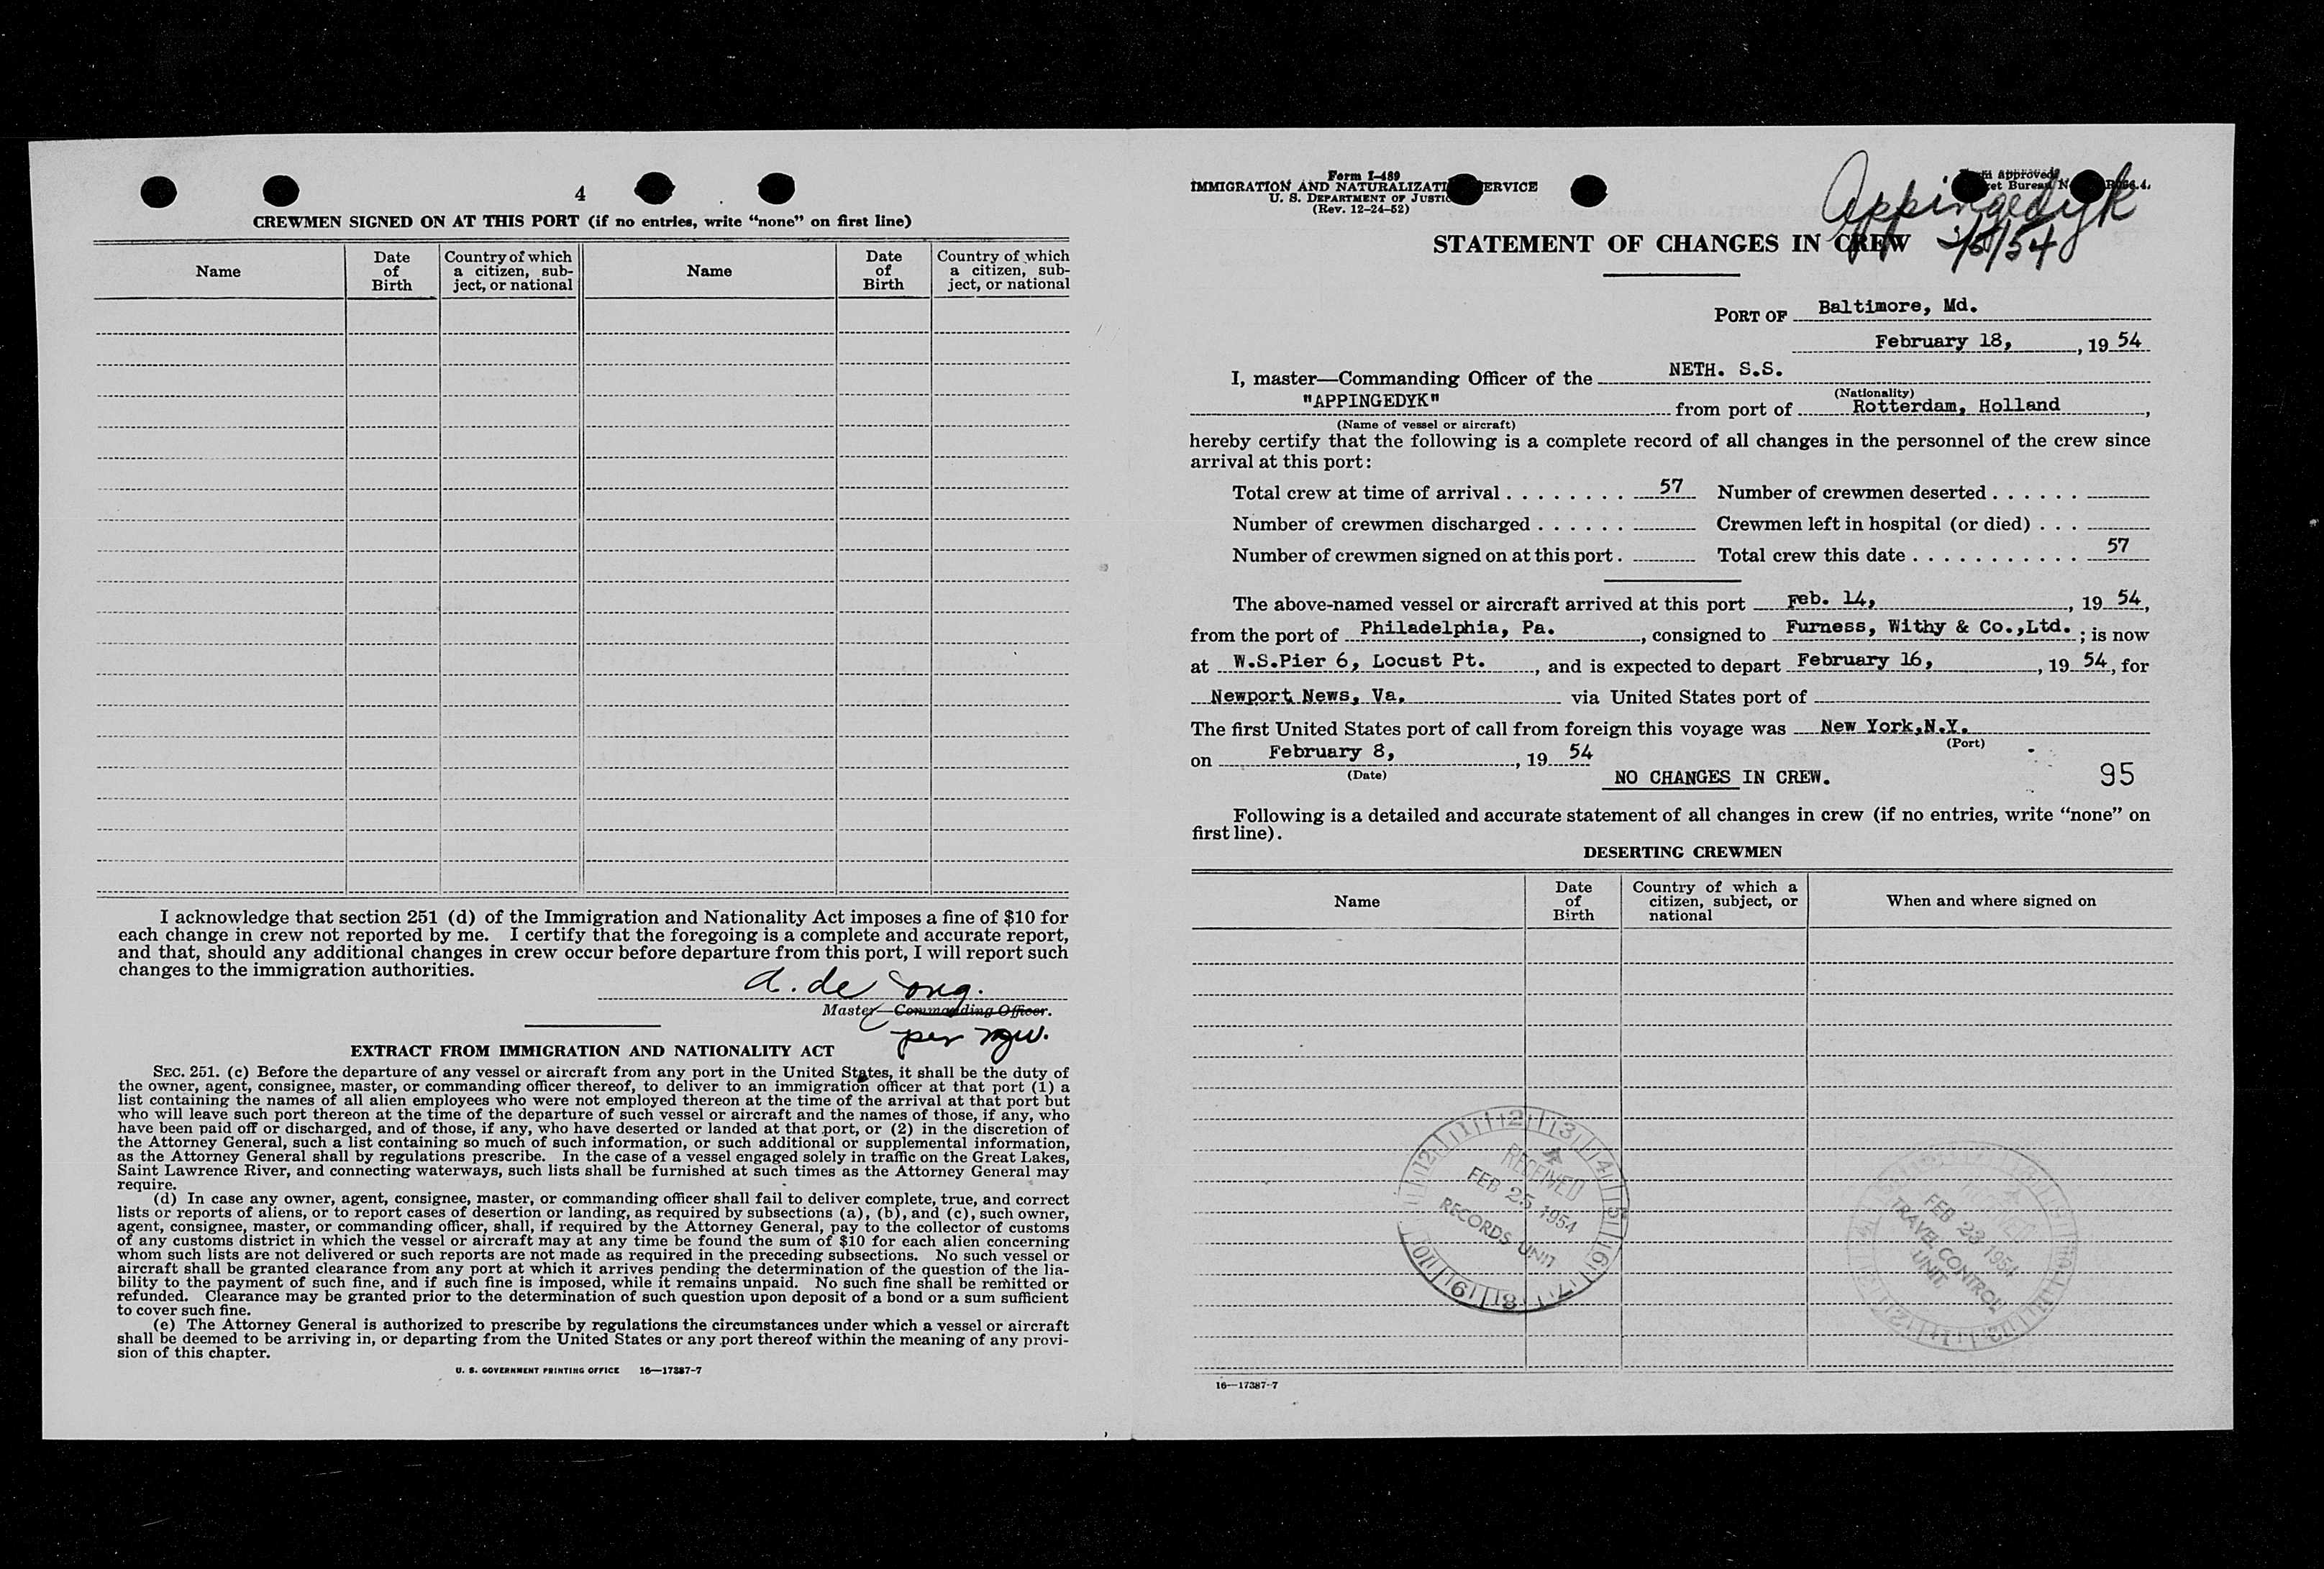 4
CREWMEN SIGNED ON AT THIS PORT (if no entries, write “none” on first line)
Name
Date of Birth
Country of which a citizen, sub-ject, or national
Name
Date of Birth
Country of which a citizen, sub-ject, or national
I acknowledge that section 251 (d) of the Immigration and Nationality Act imposes a fine of $10 for
each change in crew not reported by me. I certify that the foregoing is a complete and accurate report,
and that, should any additional changes in crew occur before departure from this port, I will report such
changes to the immigration authorities.
A. de Jong.
Master—Commanding Officer.
per
EXTRACT FROM IMMIGRATION AND NATIONALITY ACT
SEC. 251. (c) Before the departure of any vessel or aircraft from any port in the United States, it shall be the duty of
the owner, agent, consignee, master, or commanding officer thereof, to deliver to an immigration officer at that port (1) a
list containing the names of all alien employees who were not employed thereon at the time of the arrival at that port but
who will leave such port thereon at the time of the departure of such vessel or aircraft and the names of those, if any, who
have been paid off or discharged, and of those, if any, who have deserted or landed at that port, or (2) in the discretion of
the Attorney General, such a list containing so much of such information, or such additional or supplemental information,
as the Attorney General shall by regulations prescribe. In the case of a vessel engaged solely in traffic on the Great Lakes,
Saint Lawrence River, and connecting waterways, such lists shall be furnished at such times as the Attorney General may
require.
(d) In case any owner, agent, consignee, master, or commanding officer shall fail to deliver complete, true, and correct
lists or reports of aliens, or to report cases of desertion or landing, as required by subsections (a), (b), and (c), such owner,
agent, consignee, master, or commanding officer, shall, if required by the Attorney General, pay to the collector of customs
of any customs district in which the vessel or aircraft may at any time be found the sum of $10 for each alien concerning
whom such lists are not delivered or such reports are not made as required in the preceding subsections. No such vessel or
aircraft shall be granted clearance from any port at which it arrives pending the determination of the question of the lia-
bility to the payment of such fine, and if such fine is imposed, while it remains unpaid. No such fine shall be remitted or
refunded. Clearance may be granted prior to the determination of such question upon deposit of a bond or a sum sufficient
to cover such fine.
(e) The Attorney General is authorized to prescribe by regulations the circumstances under which a vessel or aircraft
shall be deemed to be arriving in, or departing from the United States or any port thereof within the meaning of any provi-
sion of this chapter.
U. S. GOVERNMENT PRINTING OFFICE 16—17387-7
Form I-489
IMMIGRATION AND NATURALIZATI ERVICE
U. S. DEPARTMENT OF JUSTIC
(Rev. 12-24-52)
Approved
et Bureau
Appingedyk
3/5/54
STATEMENT OF CHANGES IN CREW
PORT OF Baltimore, Md.
February 18, , 19 54
I, master—Commanding Officer of the NETH. S.S.
(Nationality)
"APPINGEDYK" from port of Rotterdam, Holland ,
(Name of vessel or aircraft)
hereby certify that the following is a complete record of all changes in the personnel of the crew since
arrival at this port:
Total crew at time of arrival . . . . . . . . 57 Number of crewmen deserted . . . . . .
Number of crewmen discharged . . . . . . Crewmen left in hospital (or died) . . .
Number of crewmen signed on at this port . Total crew this date . . . . . . . . . . . 57
The above-named vessel or aircraft arrived at this port Feb. 14, , 19 54,
from the port of Philadelphia, Pa. , consigned to Furness, Withy & Co.,Ltd. ; is now
at W.S.Pier 6, Locust Pt. , and is expected to depart February 16, , 19 54, for
Newport News, Va. via United States port of
The first United States port of call from foreign this voyage was New York,N.Y.
(Port)
on February 8, , 19 54
(Date)
NO CHANGES IN CREW.
95
Following is a detailed and accurate statement of all changes in crew (if no entries, write “none” on
first line).
DESERTING CREWMEN
Name
Date of Birth
Country of which a citizen, subject, or national
When and where signed on
RECEIVED
FEB 25 1954
RECORDS UNIT
FEB 23 1954
TRAVEL CONTROL
UNIT
16—17387-7